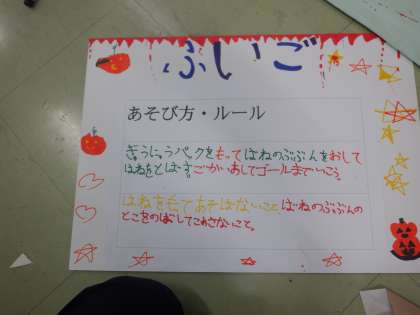 ふいご
あそび方・ルール
ぎゅうにゅうパックをもってはねのぶぶんをおして
はねをとばす。ごかいおしてゴールまでいこう。
はねをもってあそばないこと。はねのぶぶんの
とこをのばしてこわさないこと。